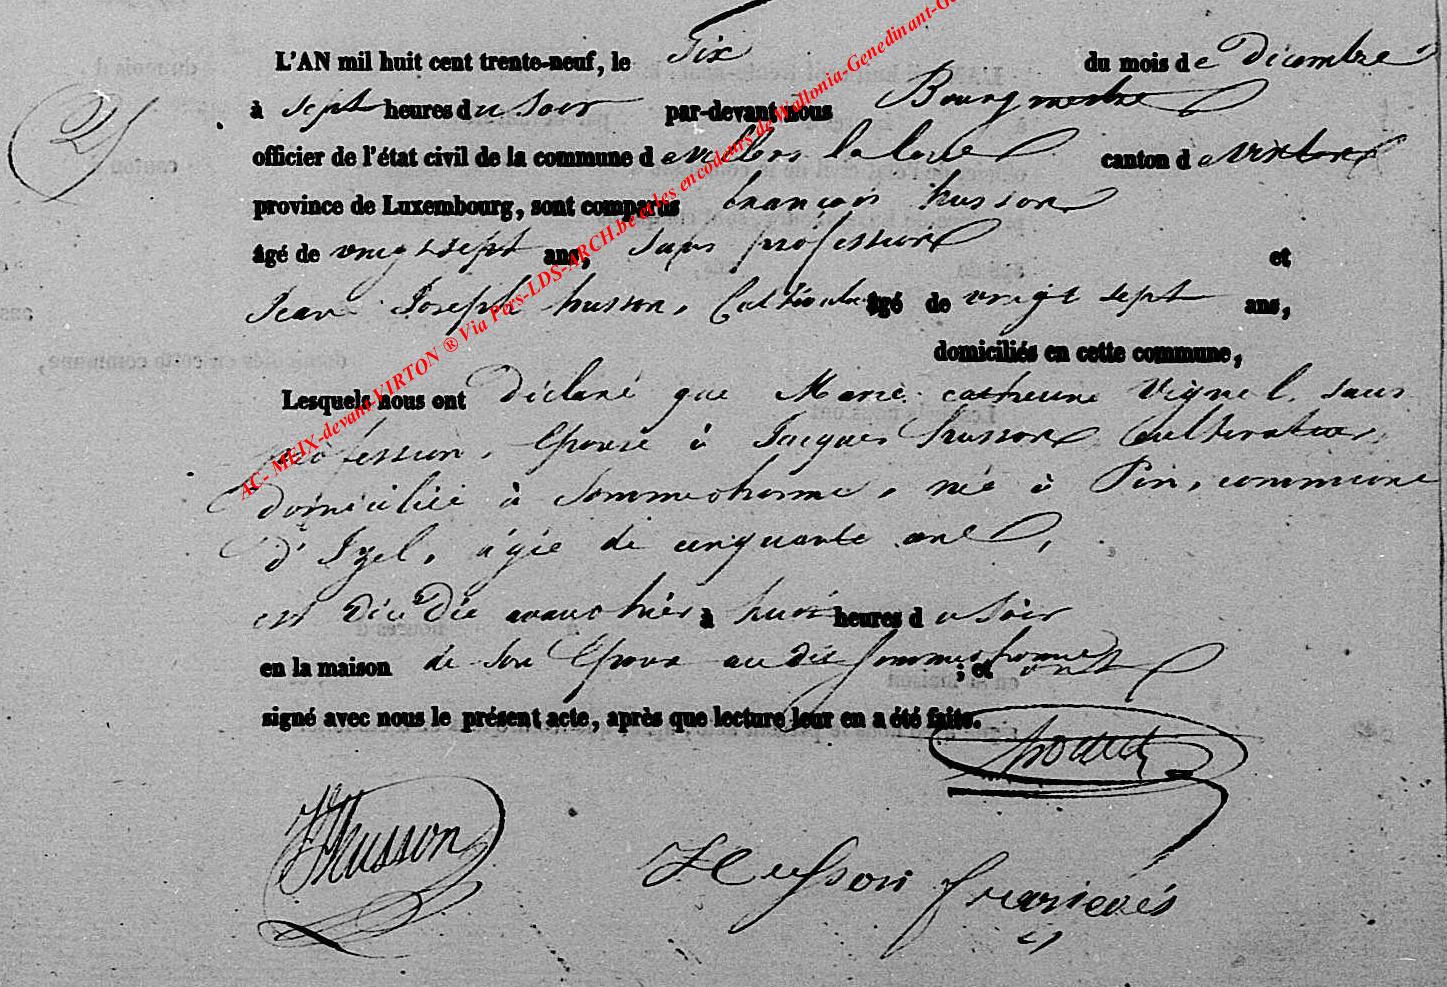 L'AN mil huit cent trente-neuf, le Six du mois de Décembre
2
à sept heures du Soir par-devant nous Bourgmestre
officier de l'état civil de la commune de villers la loue canton de virton
province de Luxembourg, sont comparus françois husson
âgé de vingt sept ans, sans profession et
Jean Joseph husson, Cultivateur âgé de vingt sept ans,
domiciliés en cette commune,
Lesquels nous ont Déclaré que Marie catherine Vignel, sans
profession, Epouse à Jacques husson Cultivateur,
domiciliée à Sommethonne, née à Pin, commune
d'Izel, agée de cinquante ans,
est décédée avant hier à huit heures du Soir
en la maison de son Epoux au dit Sommethonne ; et ont
signé avec nous le présent acte, après que lecture leur en a été faite.
JJHusson
Husson françois
AC- MEIX-devant-VIRTON ® Via Pers-LDS-ARCH.be et les encodeurs de Wallonia-Genedinant-Ge